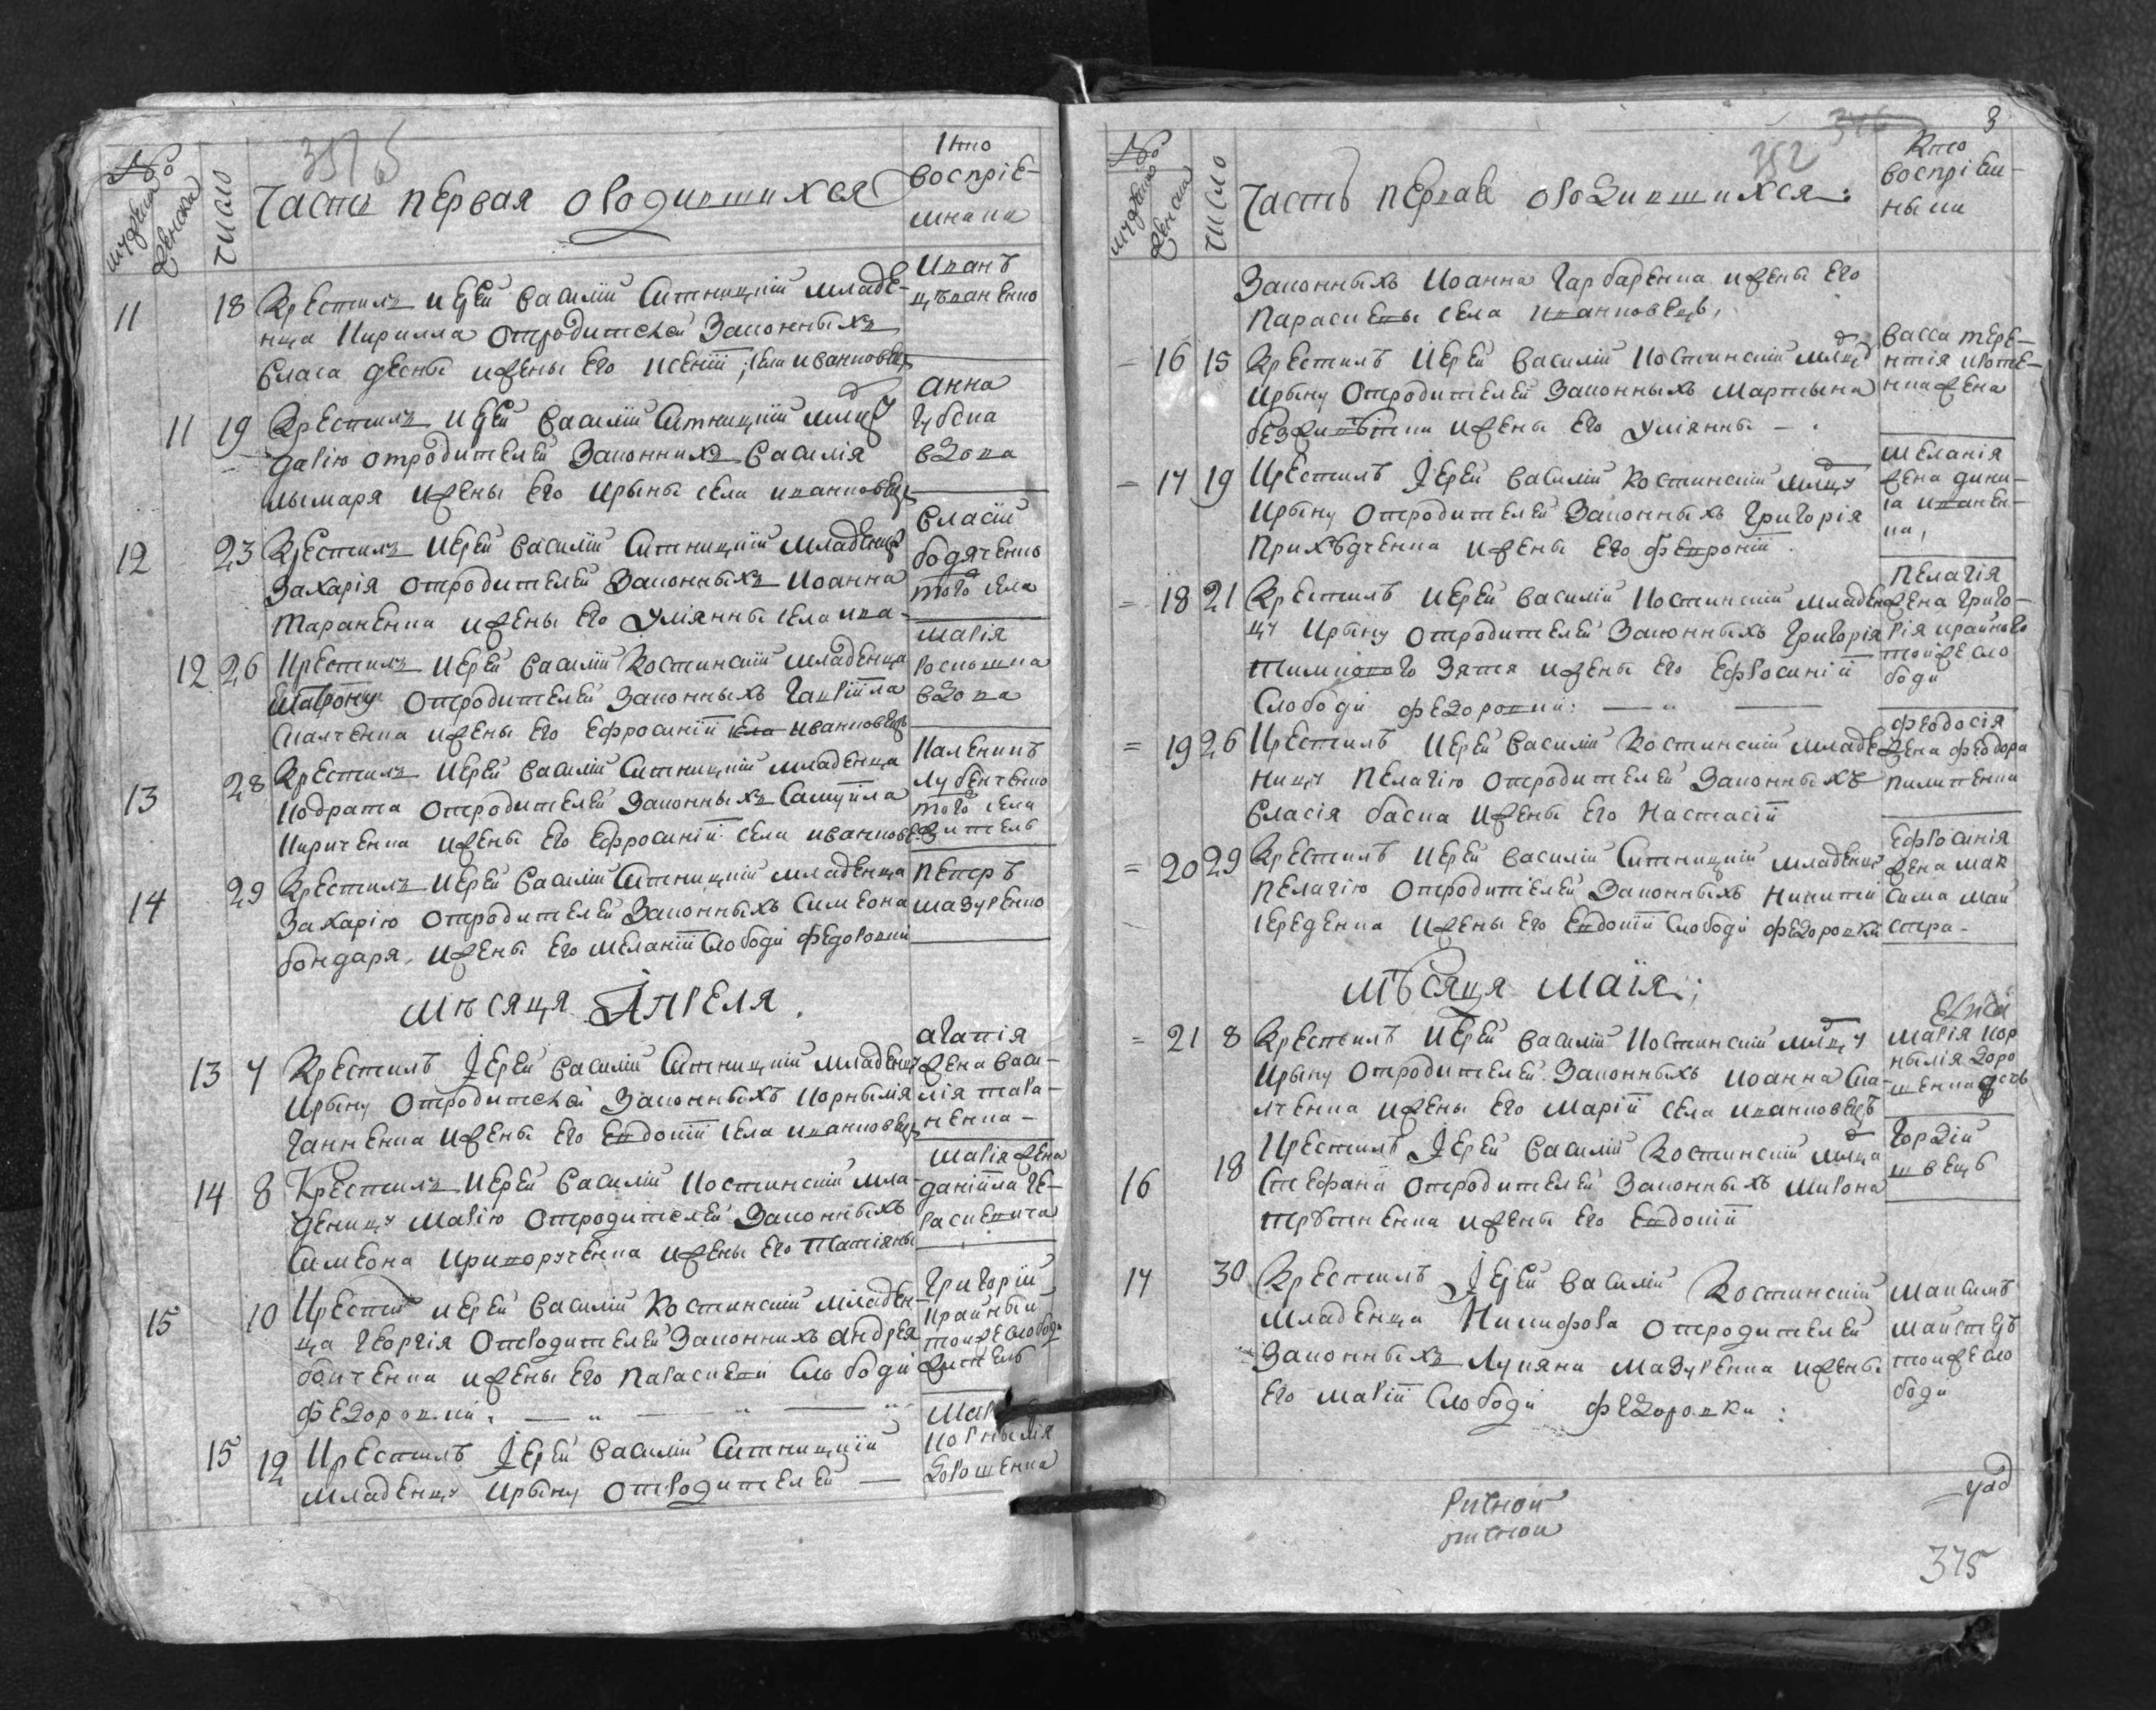 №
мужеска
женска
число
Часть первая о родившихся
Кто
восприе-
мники
11 18 Крестилъ иерей Василій Ситницкій младе-
нца Кирилла от родителей законныхъ
Власа Десны и жены его Ксеніи, села Иванковецъ
Иванъ
Цыбаненко
11 19 Крестилъ иерей Василій Ситницкій млцу
Дарію от родителей законнихъ Василія
Лымаря и жены его Ирыны села Иванковецъ
Анна
Губска
вдова
12 23 Крестилъ иерей Василій Ситницкій младенца
Захарія от родителей законныхъ Иоанна
Тараненка и жены его Уліянны села Ива-
Власій
Бодяченко
того села
12 26 Крестилъ иерей Василій Костинскій младенца
Матрону от родителей законныхъ Гавріила
Скалченка и жены его Ефросиніи села Иванковецъ
Марія
вдова
13 28 Крестилъ иерей Василій Ситницкій младенца
Кодрата от родителей законныхъ Самуила
Кириченка и жены его Ефросиніи села Иванкове
Каленикъ
Лубенченко
того села
житель
14 29 Крестилъ иерей Василій Ситницкій младенца
Захарію от родителей законныхъ Симеона
Бондаря, и жены его Меланіи слободи Федоровки
Петръ
Мазуренко
Мѣсяця Апреля.
13 7 Крестилъ іерей Василій Ситницкій младенцу
Ирыну от родителей законныхъ Корнылія
Ганненка и жены его Евдокіи села Иванковецъ
Агапія
жена Васи-
лія Тара-
ненка -
14 8 Крестилъ иерей Василій Костинскій мла-
деницу Марію от родителей законныхъ
Симеона Криворученка и жены его Татіяны
Марія жена
Даніила Ге-
расиевича
15 10 Крестил иерей Василій Костинскій младен-
ца Георгія от родителей законнихъ Андрея
Бойченка и жены его Параскеви слободи
Федоровки.
Григорій
Крайный
тоиже слободи
житель
15 12 Крестилъ іерей Василій Ситницкій
младенцу Ирыну от родителей
Корнылія
Дорошенка
3
352
№
мужеска
женска
число
Часть первая о родившихся:
Кто
воспріем-
ныки
законныхъ Иоанна Гарбаренка и жены его
Параскевы села Иванковецъ,
16 15 Крестилъ иерей Василій Костинскій млцу
Ирыну от родителей законныхъ Мартына
и жены его Уліянны -
Васса Тере-
нтія
жена
17 19 Крестилъ іерей Василій Костинскій млцу
Ирыну от родителей законныхъ Григорія
Прихѣдченка и жены его Февроніи.
Меланія
жена Дики-
ia Иванен-
ка,
18 21 Крестилъ иерей Василій Костинскій младен
цу Ирыну от родителей законныхъ Григорія
зятя и жены его Ефросиніи
слободи Федоровки:
Пелагія
жена Григо-
рія Крайнего
тойже сло
боди
19 26 Крестилъ иерей Василій Костинскій младе
ницу Пелагію от родителей законныхъ
Власія Баска и жены его Настасіи
Феодосія
жена Феодора
Пилипенка
20 29 Крестилъ иерей Василій Ситницкій младеницу
Пелагію от родителей законныхъ Никити
Середенка и жены его Евдокіи слободи Федоровки
Ефросинія
жена Мак
сима Май
стра -
Мѣсяця Маія;
21 8 Крестилъ иерей Василій Костинскій млцу
Ирыну от родителей законныхъ Иоанна Ска-
лченка и жены его Маріи села Иванковецъ
Марія Кор
нылія Доро
шенка дочь
16 18 Крестилъ іерей Василій Костинскій млца
Стефана от родителей законныхъ Мирона
и жены его Евдокіи
Гордій
Швецъ
17 30 Крестилъ іерей Василій Костинскій
младенца Никифора от родителей
законныхъ Лукяна Мазуренка и жены
его Маріи слободи Федоровки:
Максимъ
Майстеръ
тоиже сло
боди
375